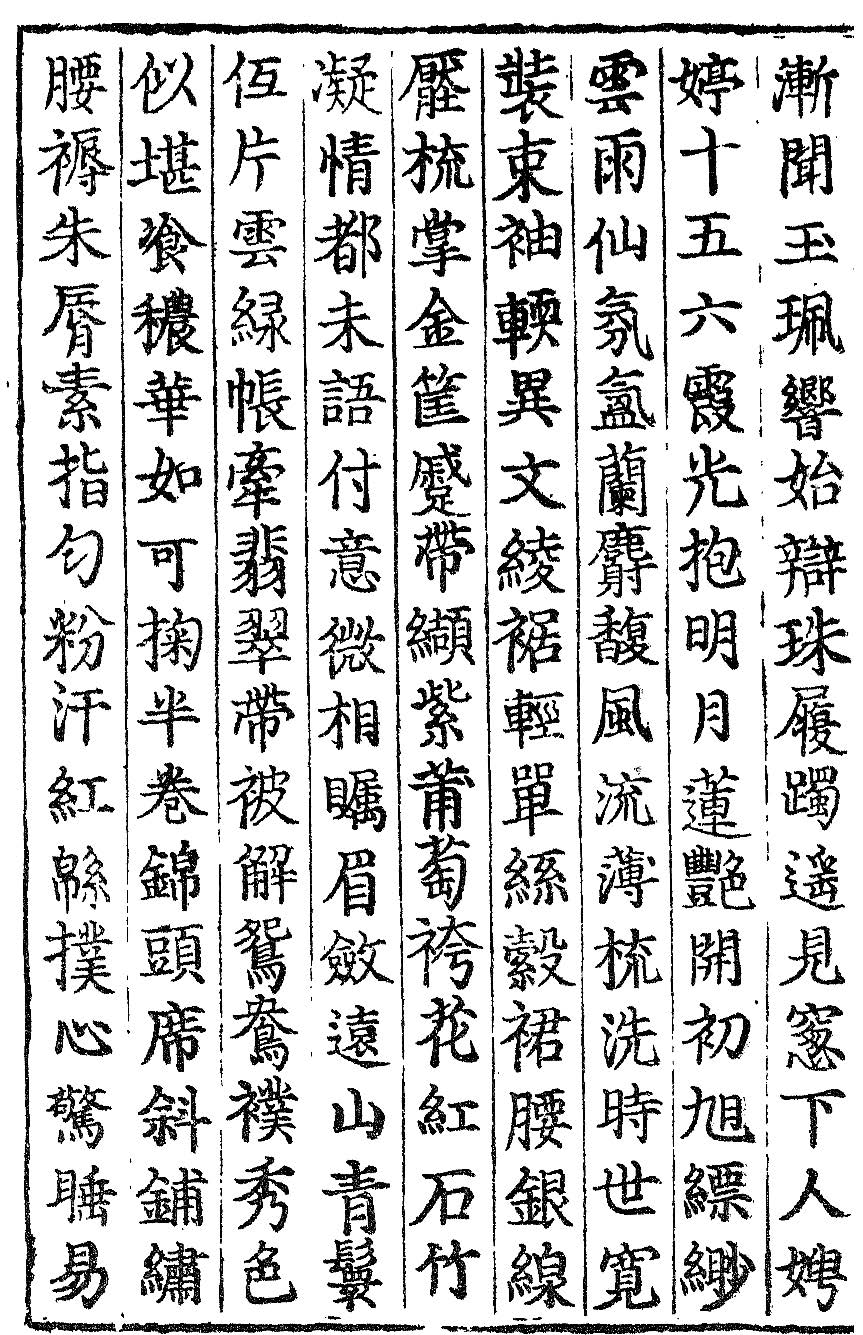 漸聞玉珮響始辯珠履躅遥見窻下人娉
婷十五六霞光抱明月蓮艷開初旭縹緲
雲雨仙氛氲蘭麝馥風流薄梳洗時世寬
裝束袖輭異文綾裾輕單絲縠裙腰銀線
壓梳掌金筐蹙帶纈紫蒲萄袴花紅石竹
凝情都未語付意微相矚眉斂遠山青鬟
低片雲緑帳牽翡翠帶被解鴛鴦襆秀色
似堪飡穠華如可掬半卷錦頭席斜鋪繡
腰褥朱脣素指匀粉汗紅綿撲心驚睡易